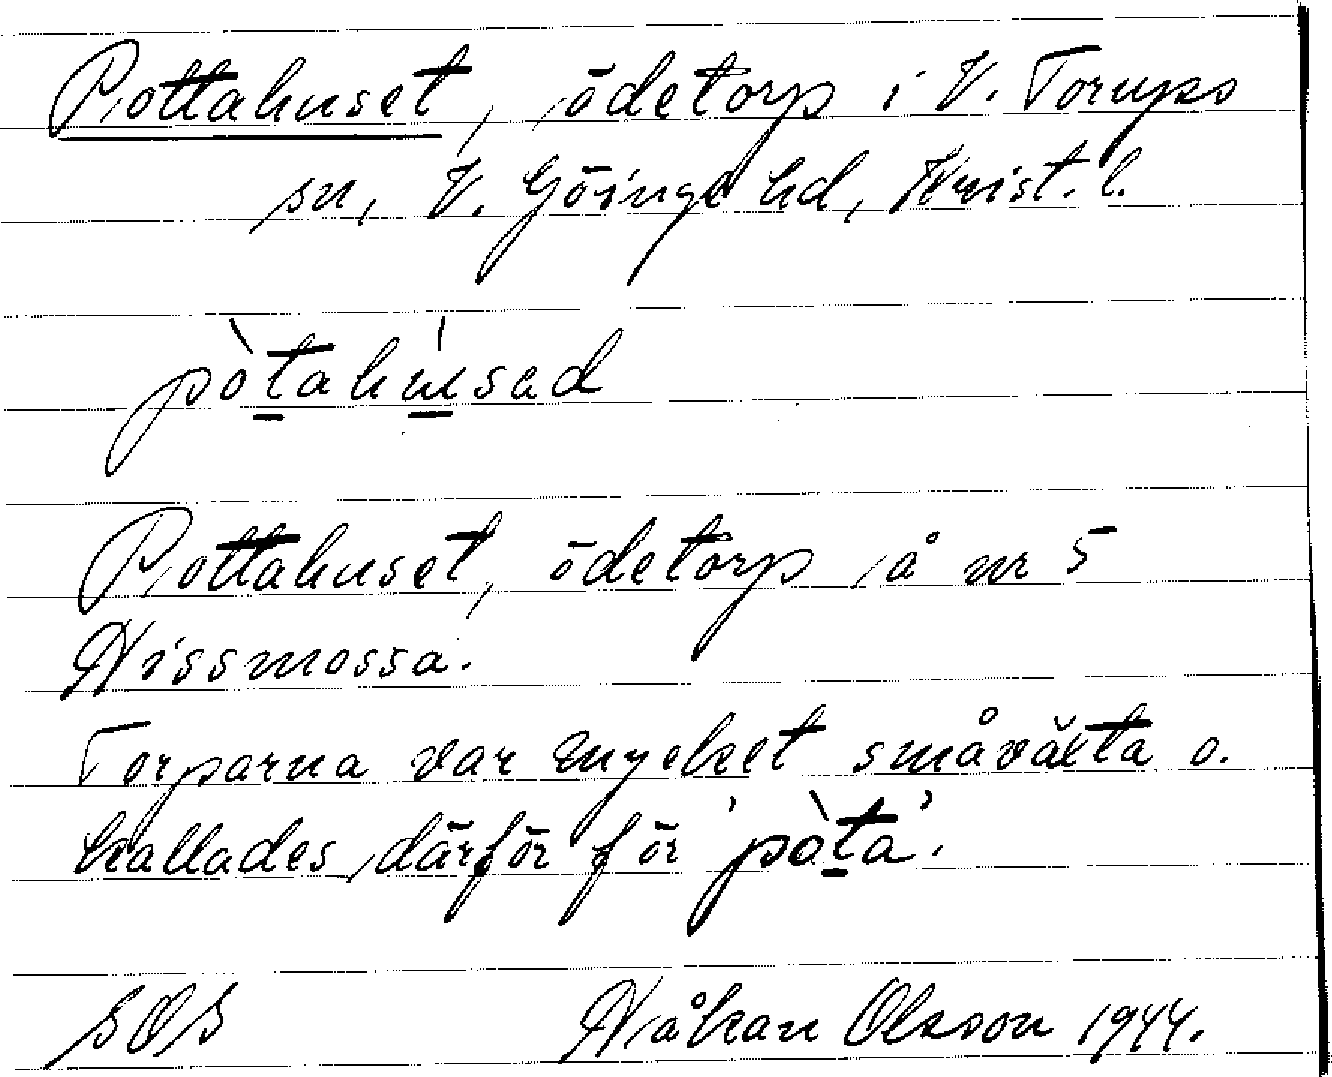 Pottahuset, ödetorp i V. Torups
sn, V. Göinge hd, Krist. l.
pòta̱hú̱sad
Pottahuset, ödetorp å nr 5
Nissmossa.
Torparna var mycket småväxta o.
kallades därför för 'pòṯa'.
SOS Håkan Olsson 1944.